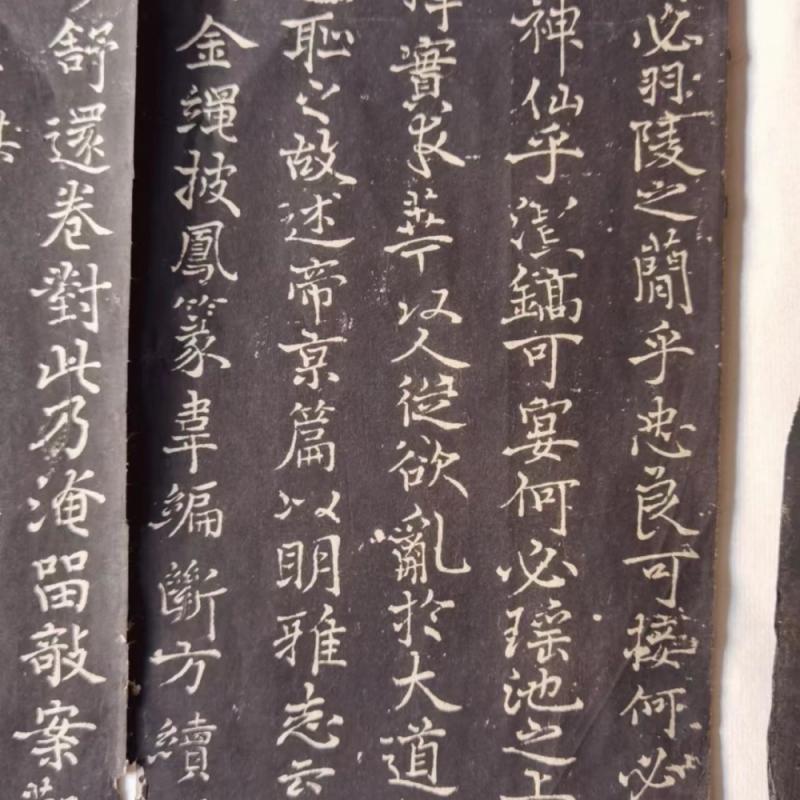 必羽陵之簡乎忠良可接何必
神仙乎澧鎬可宴何必瑤池之上
實求華以人從欲亂於大道
恥之故述帝京篇以明雅志云
金繩披鳳篆韋編斷方續
舒還卷對此乃淹留敧案觀